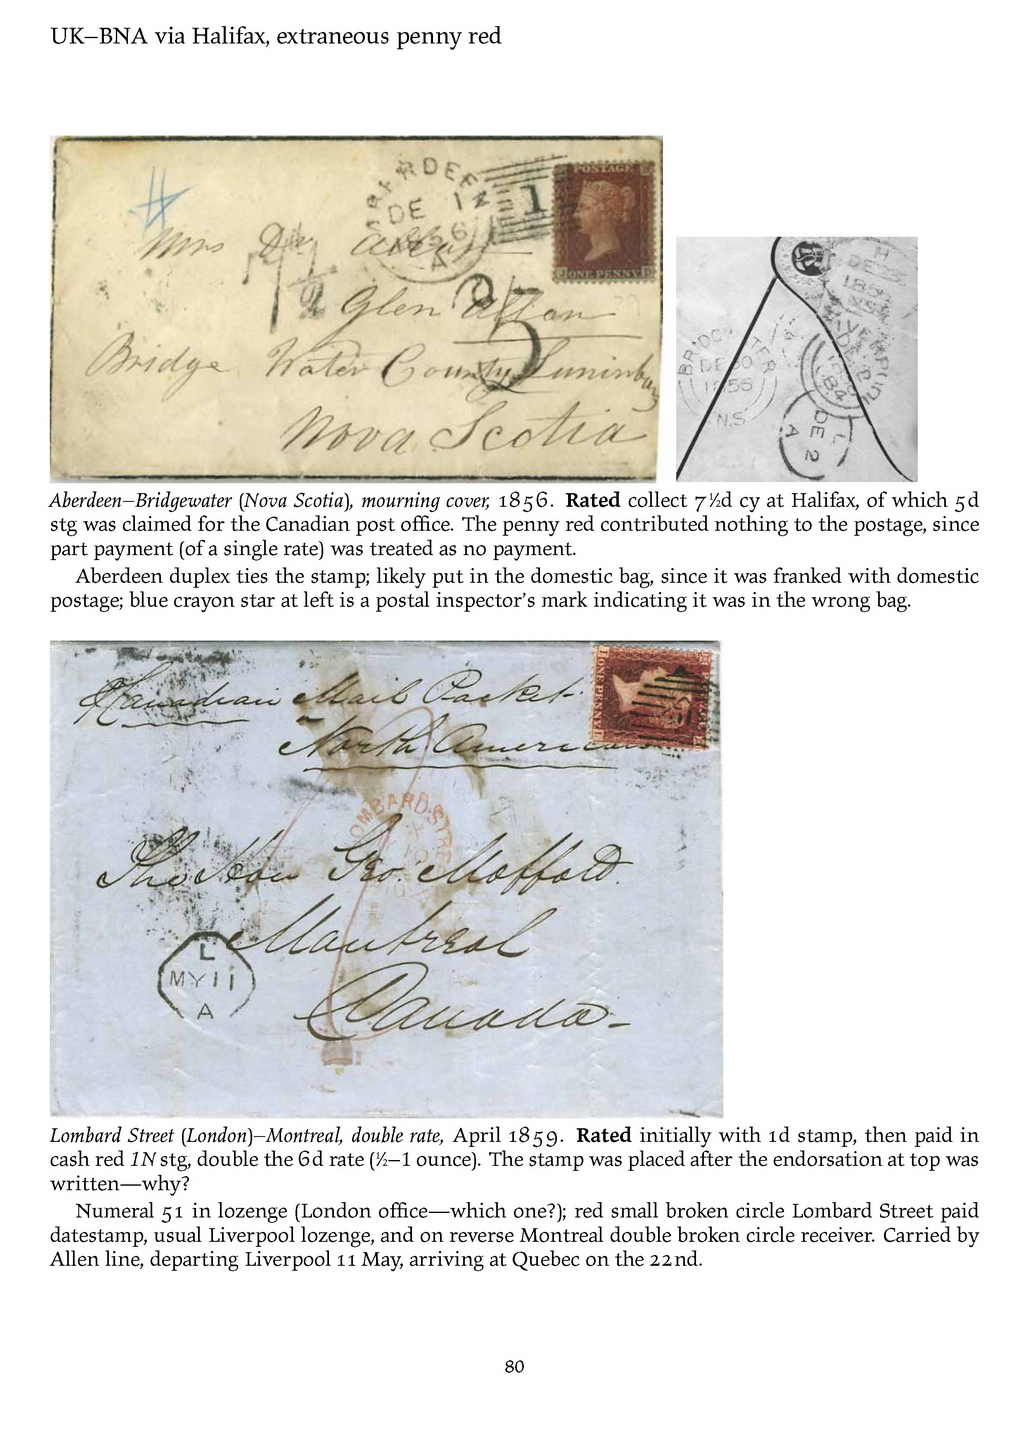 UK–BNA via Halifax, extraneous penny red
ABERDEEN
DE 1
A
1
POSTAGE
ONE PENNY
Mrs
7½
5
Bridge Water County
Nova Scotia
BRIDGEWATER
DE 30
N.S
DE 2
A
Aberdeen–Bridgewater (Nova Scotia), mourning cover, 1856. Rated collect 7½d cy at Halifax, of which 5d
stg was claimed for the Canadian post office. The penny red contributed nothing to the postage, since
part payment (of a single rate) was treated as no payment.
Aberdeen duplex ties the stamp; likely put in the domestic bag, since it was franked with domestic
postage; blue crayon star at left is a postal inspector's mark indicating it was in the wrong bag.
Canadian Mail Packet
North American
LOMBARD STREET
The Hon Geo. Moffatt
Montreal
Canada
L
MY 11
A
Lombard Street (London)–Montreal, double rate, April 1859. Rated initially with 1d stamp, then paid in
cash red 1N stg, double the 6d rate (½–1 ounce). The stamp was placed after the endorsation at top was
written—why?
Numeral 51 in lozenge (London office—which one?); red small broken circle Lombard Street paid
datestamp, usual Liverpool lozenge, and on reverse Montreal double broken circle receiver. Carried by
Allen line, departing Liverpool 11 May, arriving at Quebec on the 22nd.
80